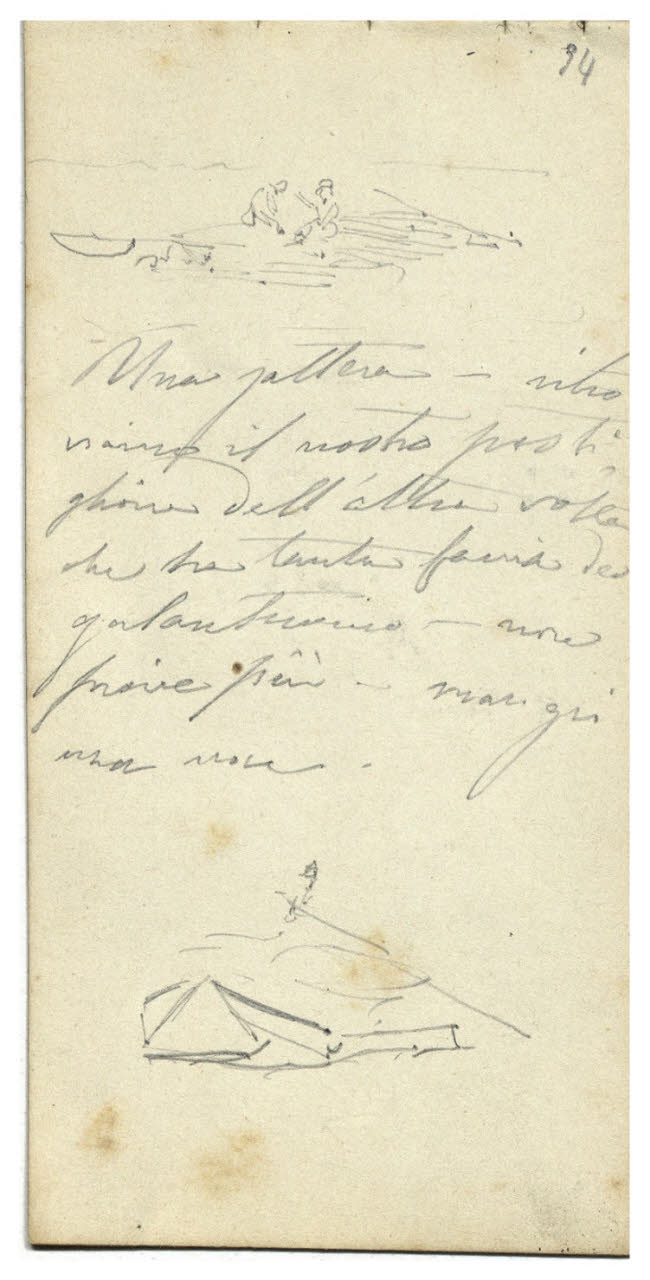 94
Una zattera – ritro
viamo il nostro posti
glione dell'altra volta
che ha tanta faccia da
galantuomo – non
piove più – mangi
una noce.